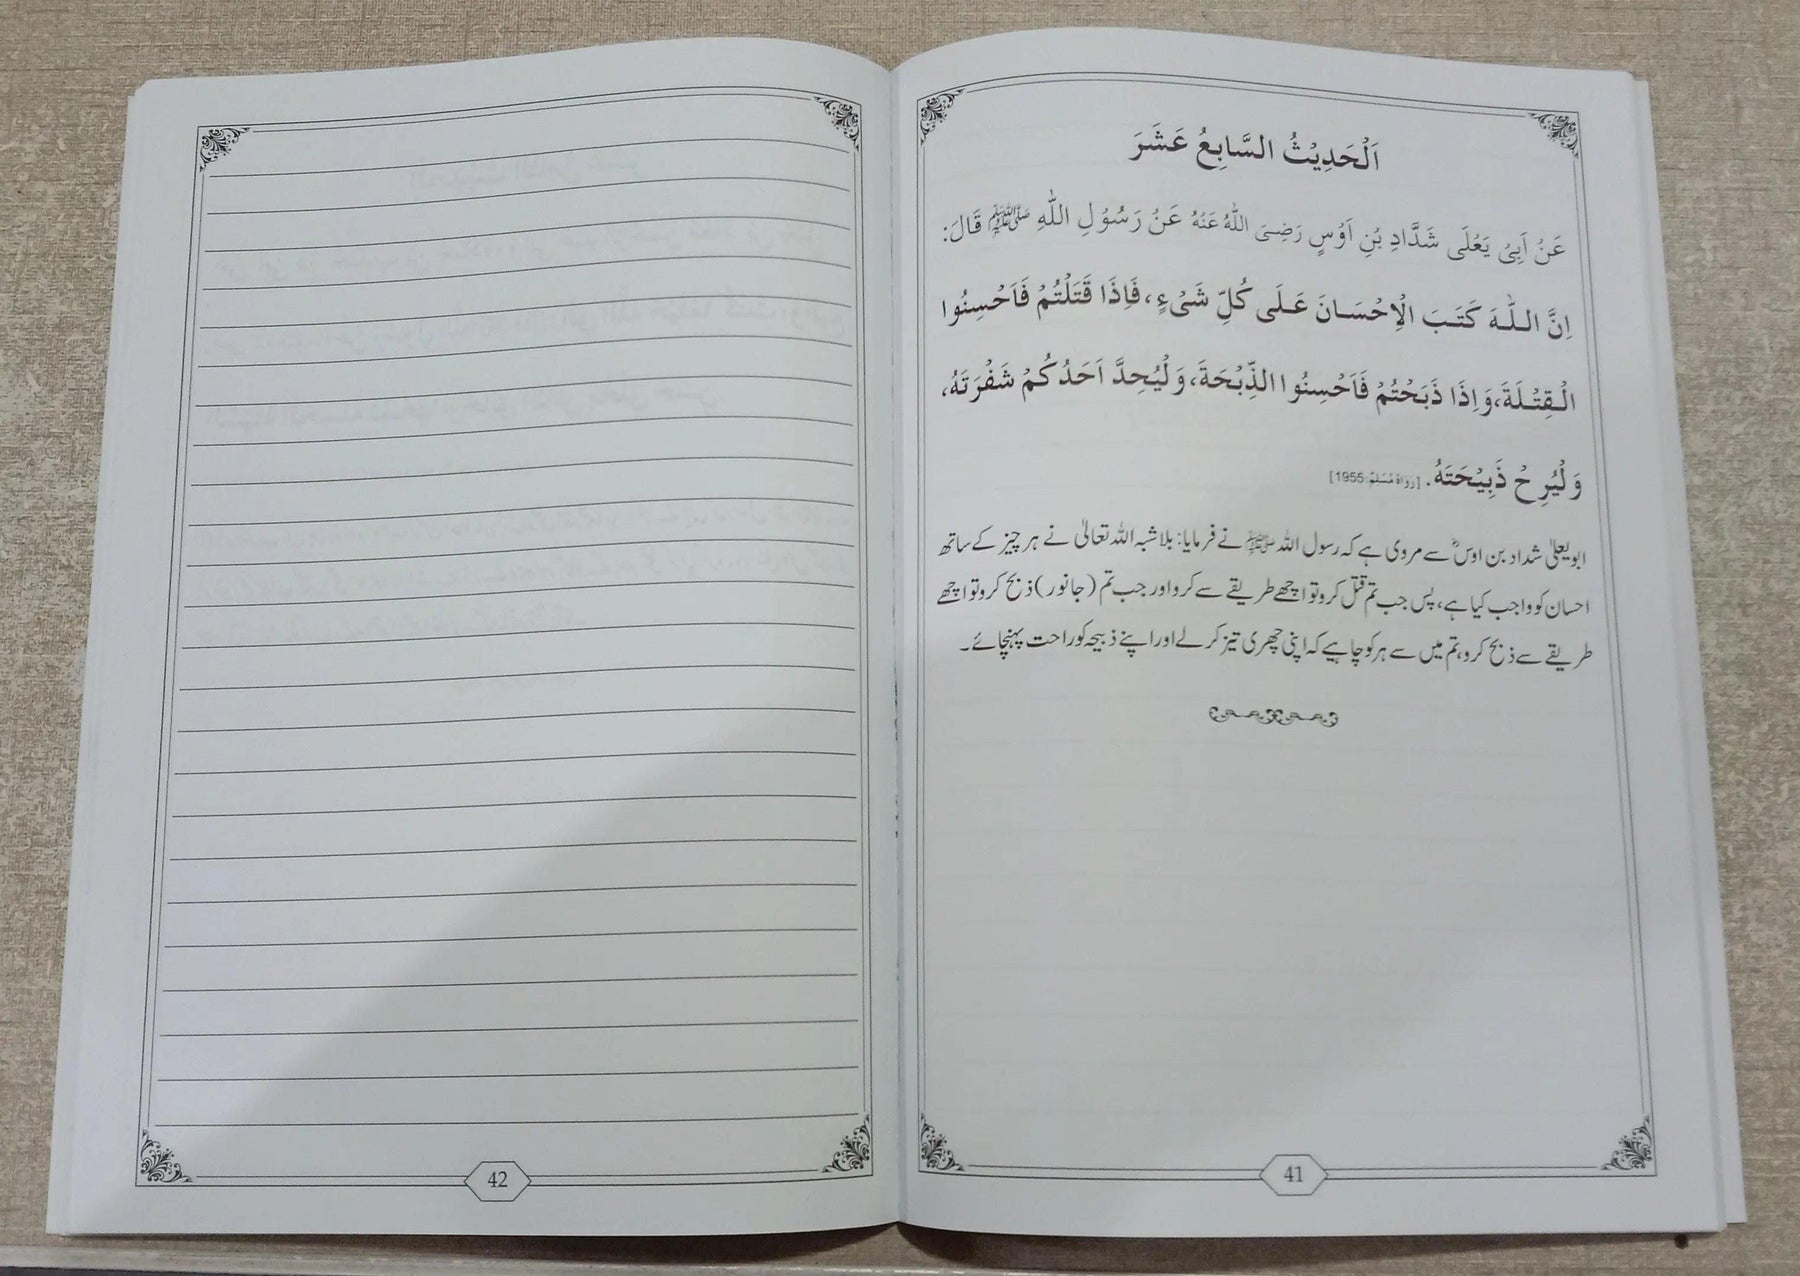 اَلْحَدِيْثُ السَّابِعُ عَشَرَ
عَنْ اَبِیْ يَعْلَى شَدَّادِ بْنِ اَوْسٍ رَضِیَ اللّٰهُ عَنْهُ عَنْ رَسُوْلِ اللّٰهِ ﷺ قَالَ:
اِنَّ اللّٰهَ كَتَبَ الْاِحْسَانَ عَلَى كُلِّ شَیْءٍ، فَاِذَا قَتَلْتُمْ فَاَحْسِنُوا
الْقِتْلَةَ، وَاِذَا ذَبَحْتُمْ فَاَحْسِنُوا الذِّبْحَةَ، وَلْيُحِدَّ اَحَدُكُمْ شَفْرَتَهُ،
وَلْيُرِحْ ذَبِيْحَتَهُ. [رَوَاهُ مُسْلِمٌ:1955]
ابویعلیٰ شداد بن اوسؓ سے مروی ہے کہ رسول اللہ ﷺ نے فرمایا: بلاشبہ اللہ تعالیٰ نے ہر چیز کے ساتھ
احسان کو واجب کیا ہے، پس جب تم قتل کرو تو اچھے طریقے سے کرو اور جب تم (جانور) ذبح کرو تو اچھے
طریقے سے ذبح کرو، تم میں سے ہر کو چاہیے کہ اپنی چھری تیز کر لے اور اپنے ذبیحہ کو راحت پہنچائے۔
41
42